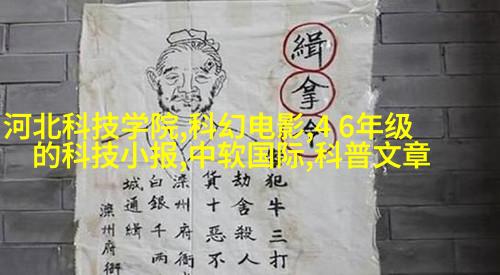 河北科技学院,科幻电影,4 6年级
的科技小报,中软国际,科普文章
緝拿
犯牛三打
劫舍殺人
貨十惡不
滦州府衙
白銀千两
城通緝
滦州府衙